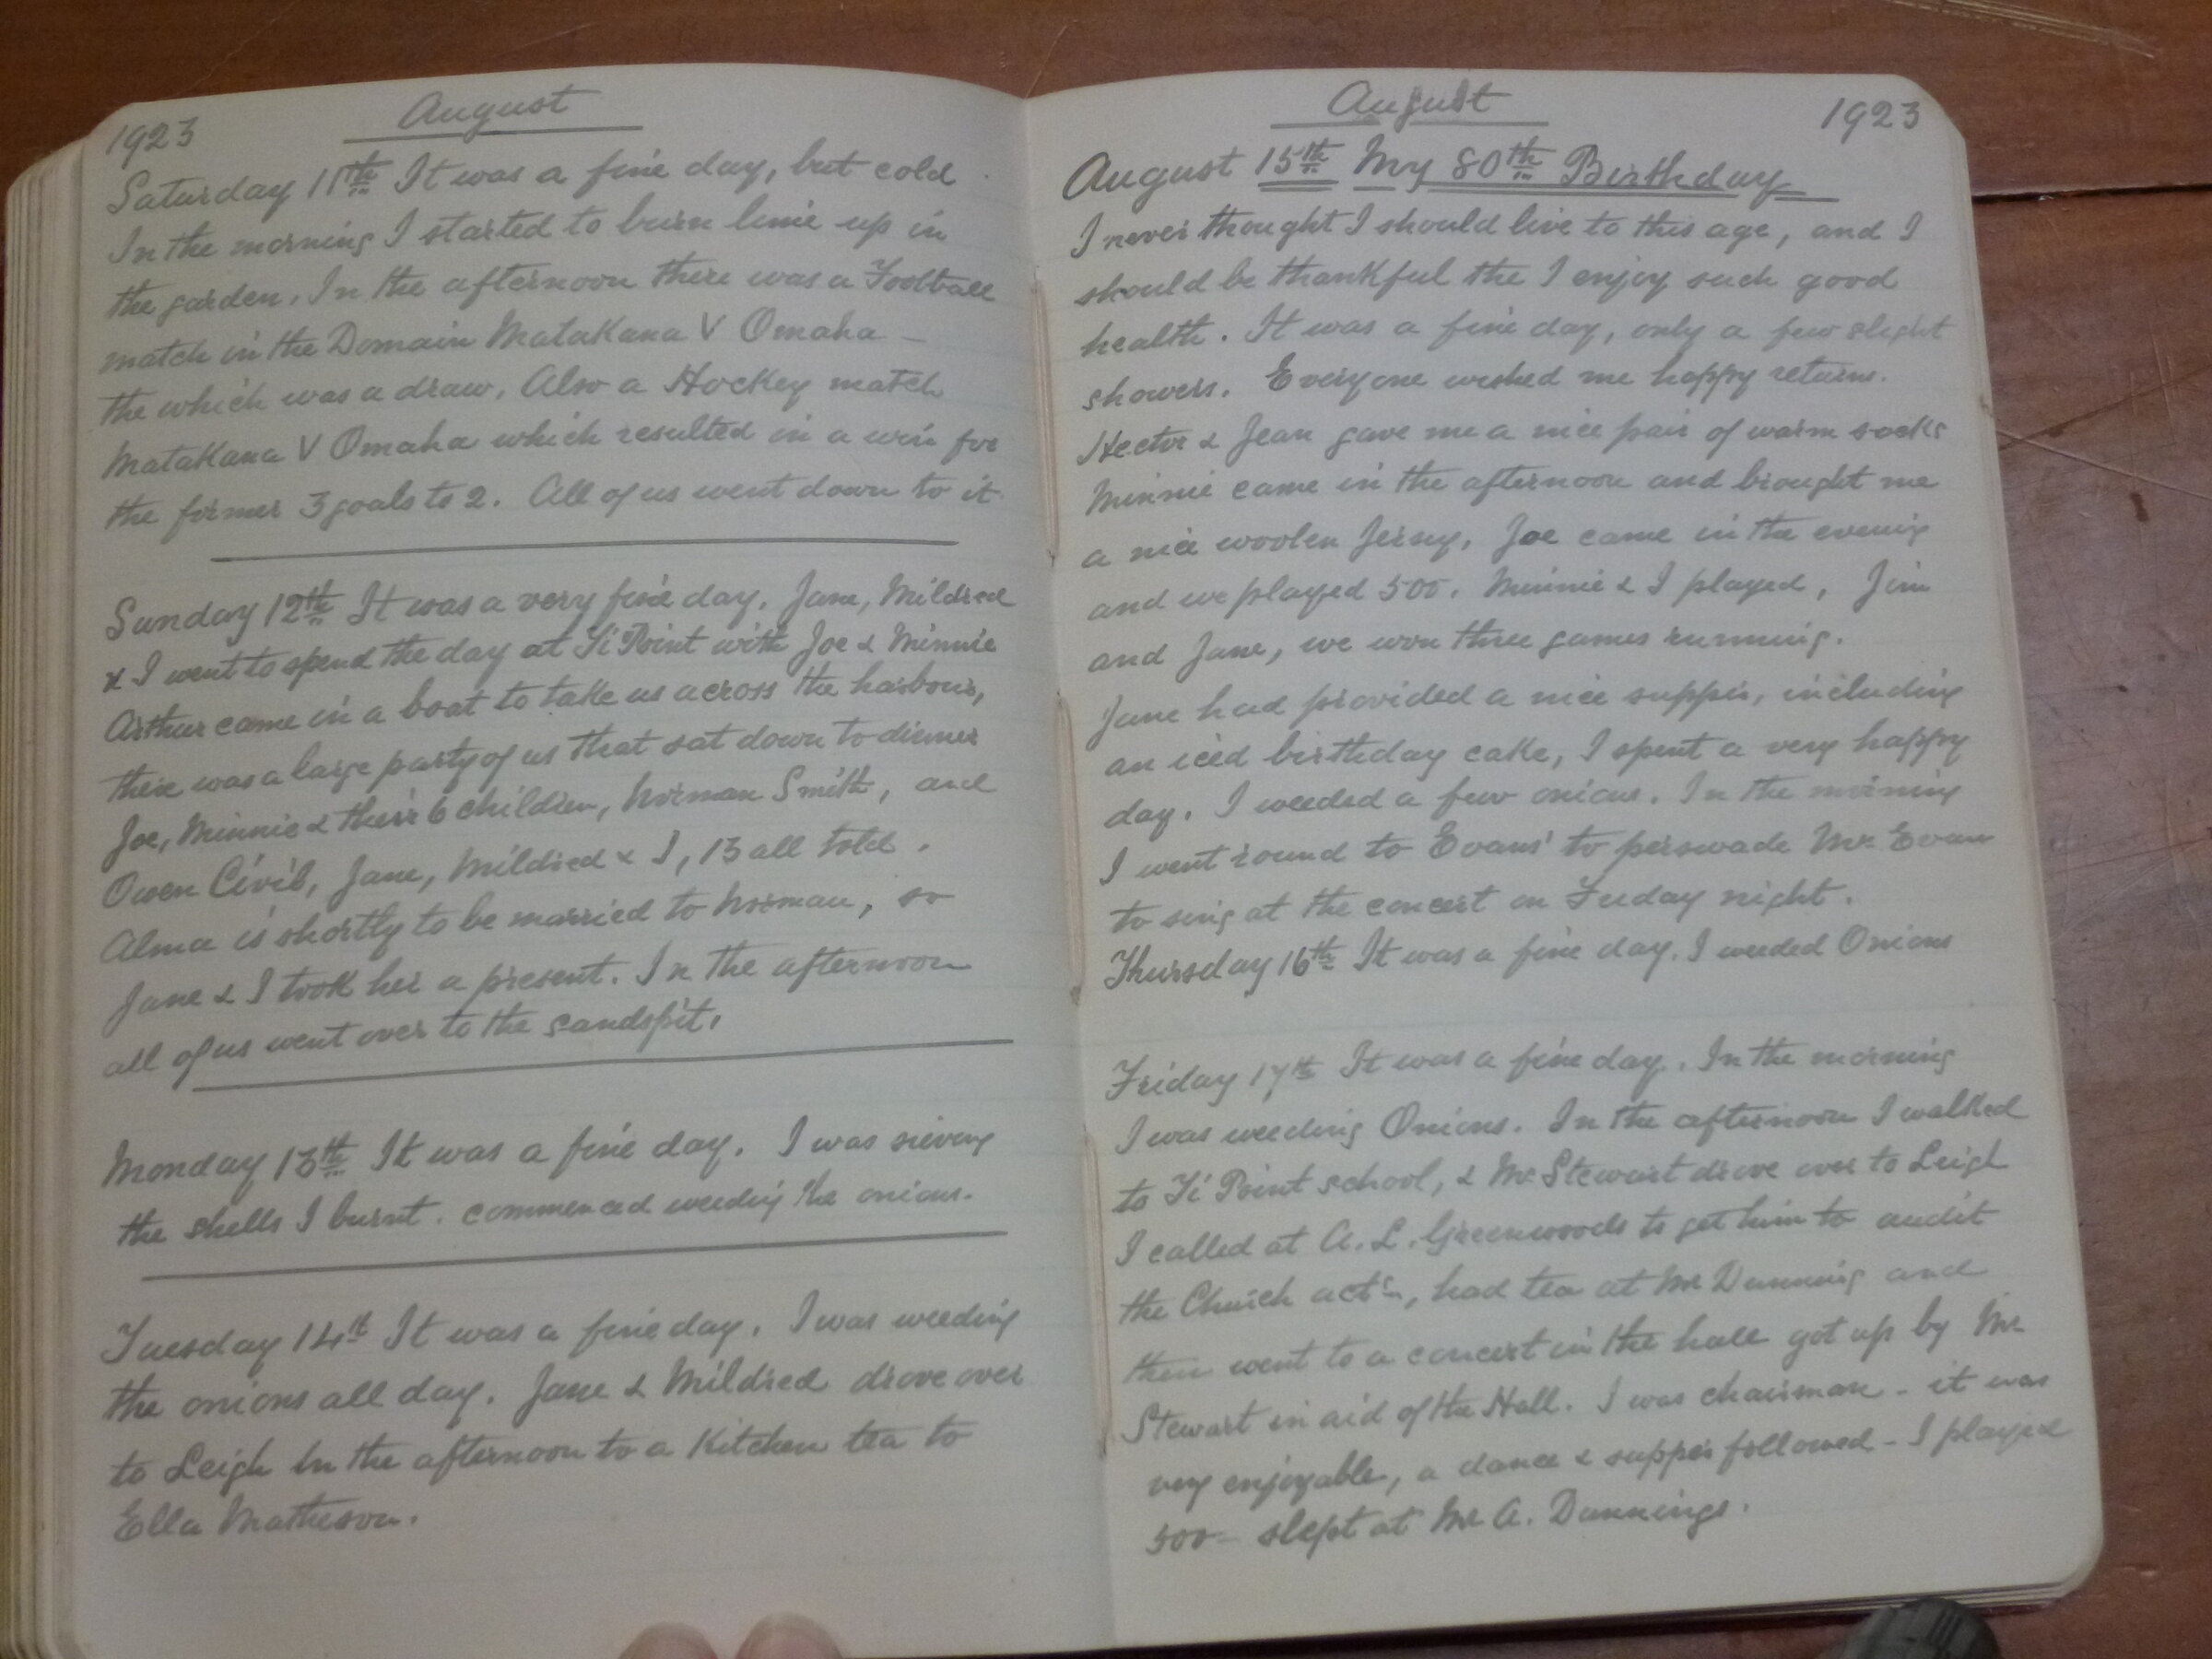 1923 August
Saturday 11th It was a fine day, but cold
In the morning I started to burn lime up in
the garden. In the afternoon there was a Football
match in the Domain Matakana V Omaha –
the which was a draw. Also a Hockey match
Matakana V Omaha which resulted in a win for
the former 3 goals to 2. All of us went down to it.
Sunday 12th It was a very fine day. Jane, Mildred
& I went to spend the day at Ti Point with Joe & Minnie
Arthur came in a boat to take us across the harbour,
there was a large party of us that sat down to dinner
Joe, Minnie & their 6 children, Norman Smith, and
Owen Civil, Jane, Mildred & I, 13 all told.
Alma is shortly to be married to Norman, so
Jane & I took her a present. In the afternoon
all of us went over to the sandspit.
Monday 13th It was a fine day. I was sieving
the shells I burnt. commenced weeding the onions.
Tuesday 14th It was a fine day. I was weeding
the onions all day. Jane & Mildred drove over
to Leigh in the afternoon to a Kitchen tea to
Ella Matheson.
August 1923
August 15th My 80th Birthday
I never thought I should live to this age, and I
should be thankful the I enjoy such good
health. It was a fine day, only a few slight
showers. Everyone wished me happy returns.
Hector & Jean gave me a nice pair of warm socks
Minnie came in the afternoon and brought me
a nice woolen Jersey, Joe came in the evening
and we played 500. Minnie & I played, Jim
and Jane, we won three games running.
Jane had provided a nice supper, including
an iced birthday cake, I spent a very happy
day. I weeded a few onions. In the morning
I went round to Evans' to perswade Mr Evans
to sing at the concert on Friday night.
Thursday 16th It was a fine day. I weeded Onions
Friday 17th It was a fine day. In the morning
I was weeding Onions. In the afternoon I walked
to Ti Point school, & Mr Stewart drove over to Leigh
I called at A. L. Greenwoods to get him to audit
the Church acts, had tea at Mr Dunning and
then went to a concert in the hall got up by Mr
Stewart in aid of the Hall. I was chairman - it was
very enjoyable, a dance & supper followed - I played
500 - slept at Mr A. Dunnings.